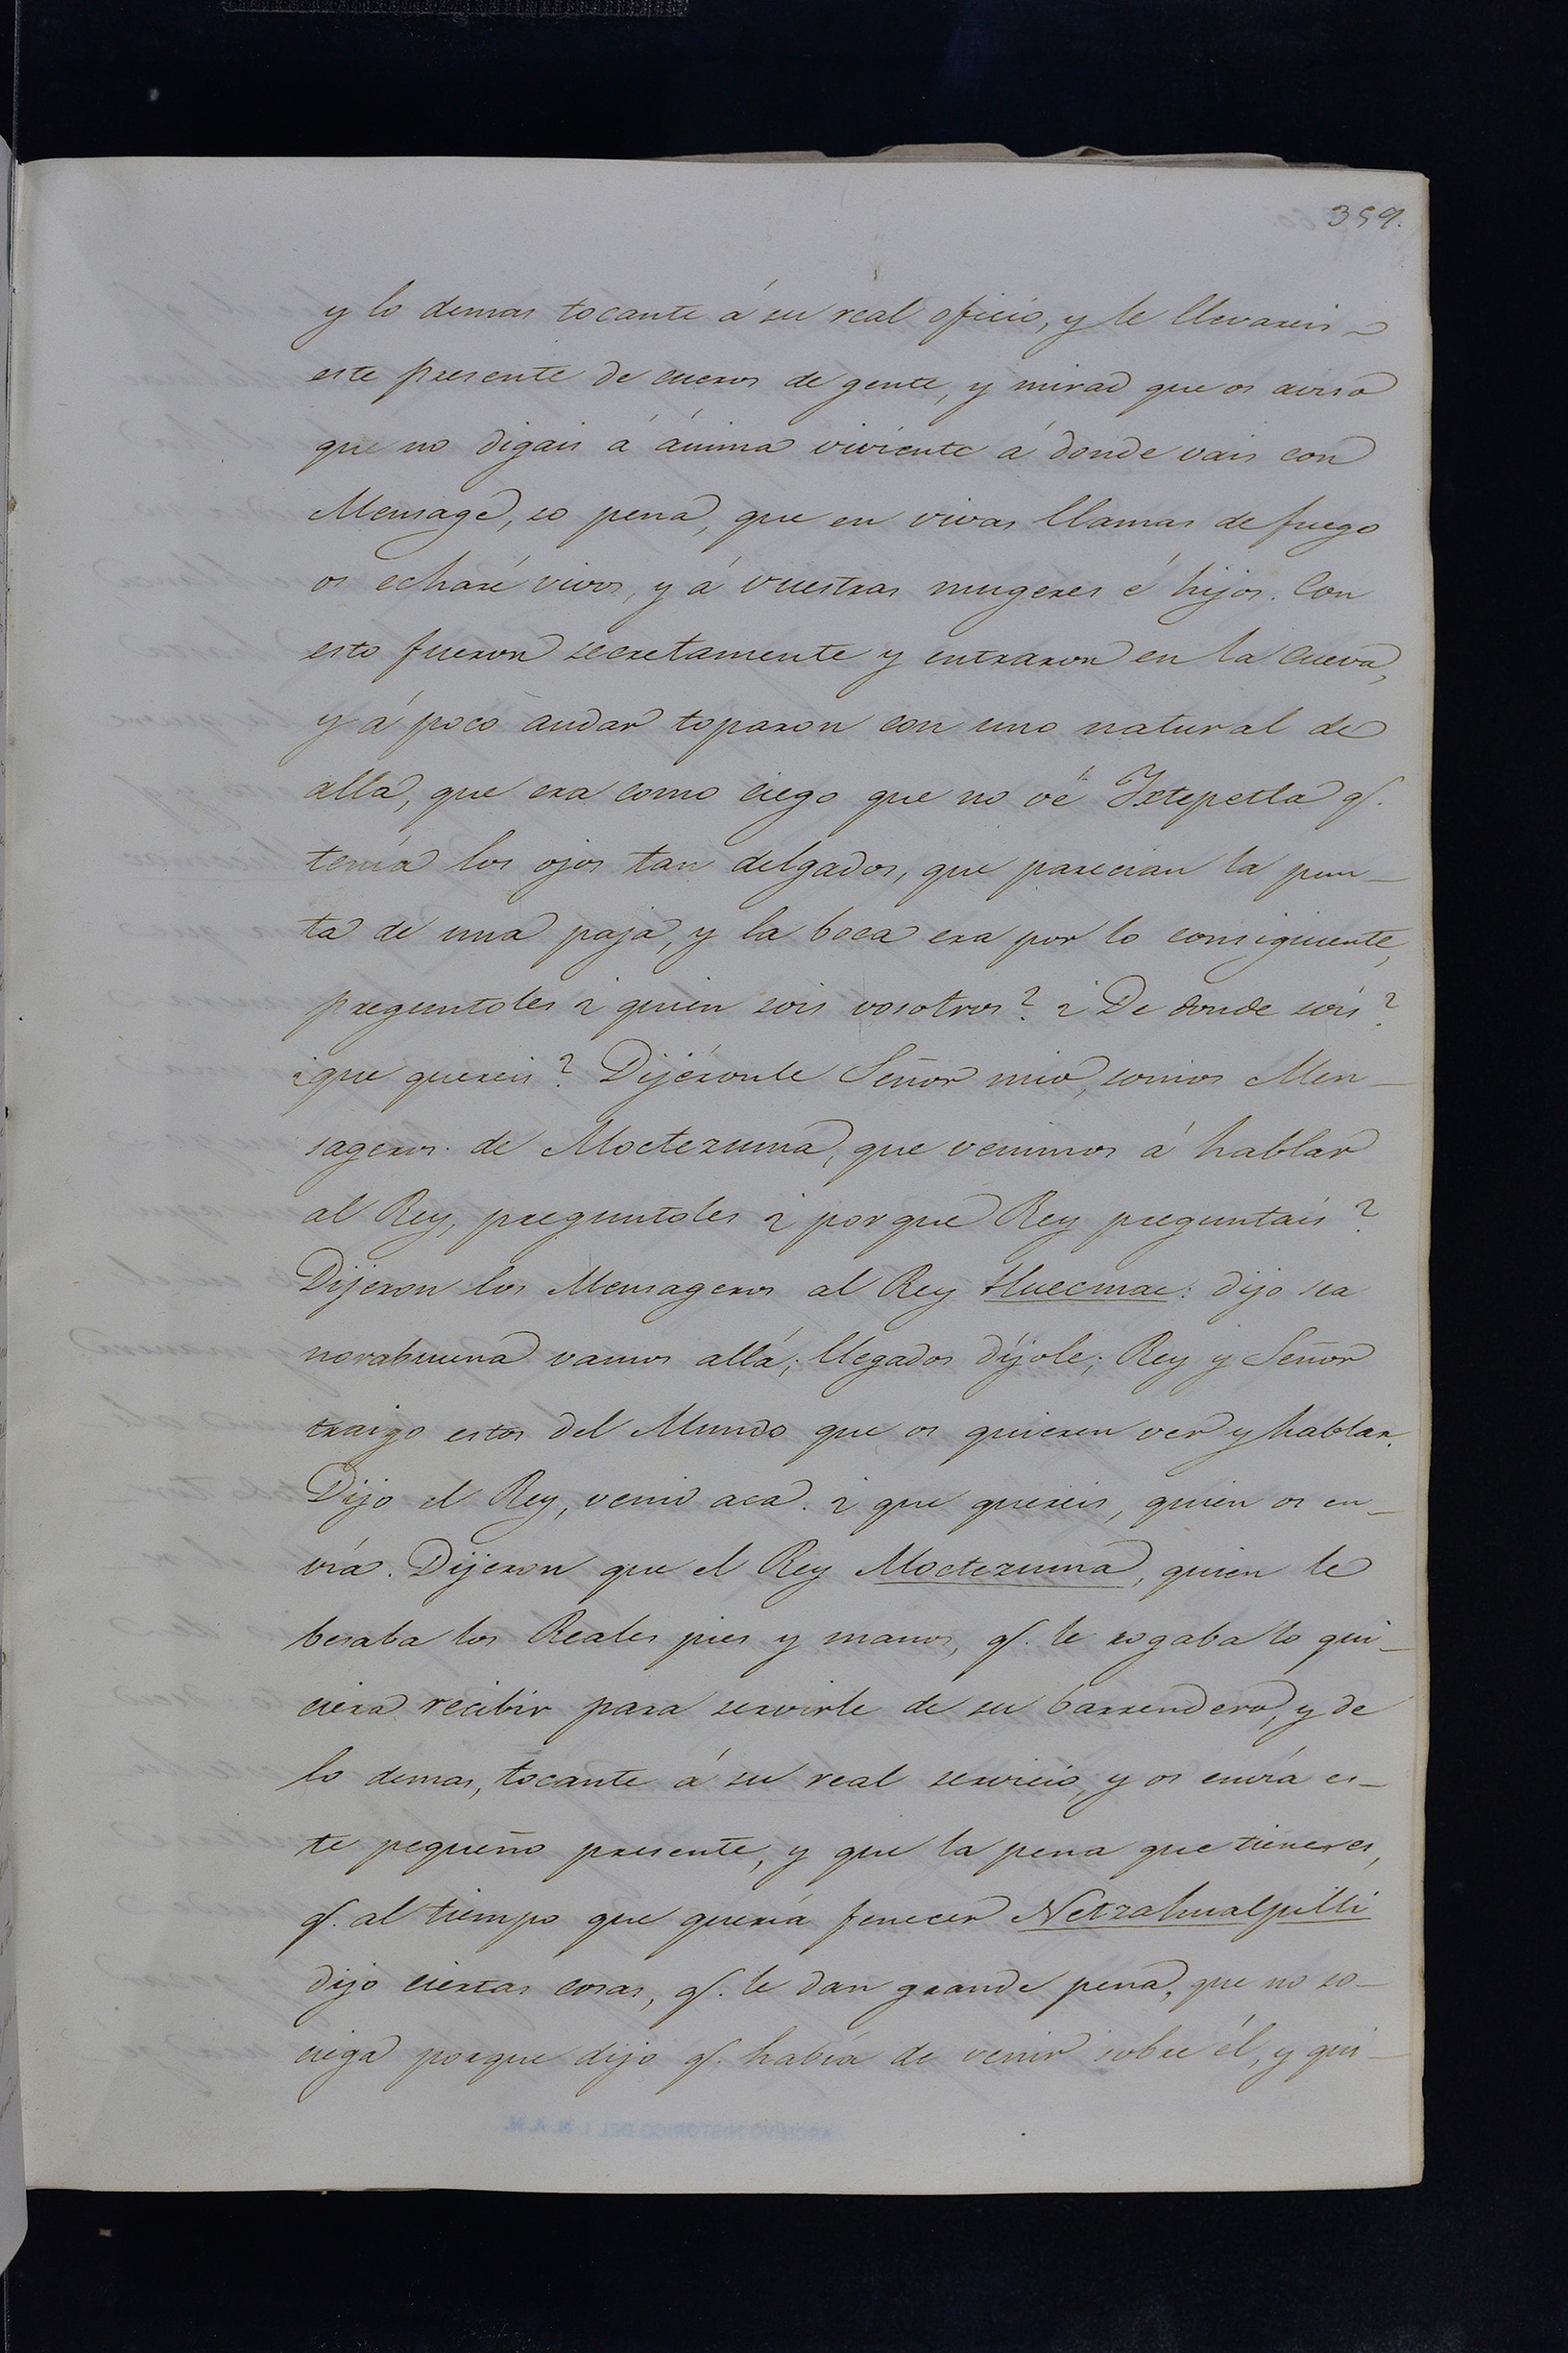 359.
y lo demas tocante á su real oficio, y le llevareis
este presente de cueros de gente, y mirad que os aviso
que no digais á ánima viviente á donde vais con
Mensage, so pena, que en vivas llamas de fuego
os echaré vivos, y á vuestras mugeres é hijos. Con
esto fueron secretamente y entraron en la Cueva,
y á poco andar toparon con uno natural de
alla, que era como ciego que no vé Ixtepetla q.
tenía los ojos tan delgados, que parecian la pun-
ta de una paja, y la boca era por lo consiguiente,
preguntoles ¿quien sois vosotros? ¿De donde sois?
¿que quereis? Dijéronle Señor mio, somos Men-
sageros de Moctezuma, que venimos á hablar
al Rey, preguntoles ¿porque Rey preguntais?
Dijeron los Mensageros al Rey Huecmac: dijo sea
norabuena vamos allá; llegados díjole; Rey y Señor
traigo estos del Mundo que os quieren ver y hablar.
Dijo el Rey, venid aca. ¿que quereis, quien os en-
vía. Dijeron que el Rey Moctezuma, quien le
besaba los Reales pies y manos, q. le rogaba lo qui-
ciera recibir para servirle de su barrendero, y de
lo demas, tocante á su real servicio, y os envía es-
te pequeño presente, y que la pena que tiene es,
q. al tiempo que quería fenecer Netzahualpilli
dijo ciertas cosas, q. le dan grande pena, que no so-
ciega porque dijo q. había de venir sobre él, y qui-
ARCHIVO HISTORICO DEL I. N. A. H.